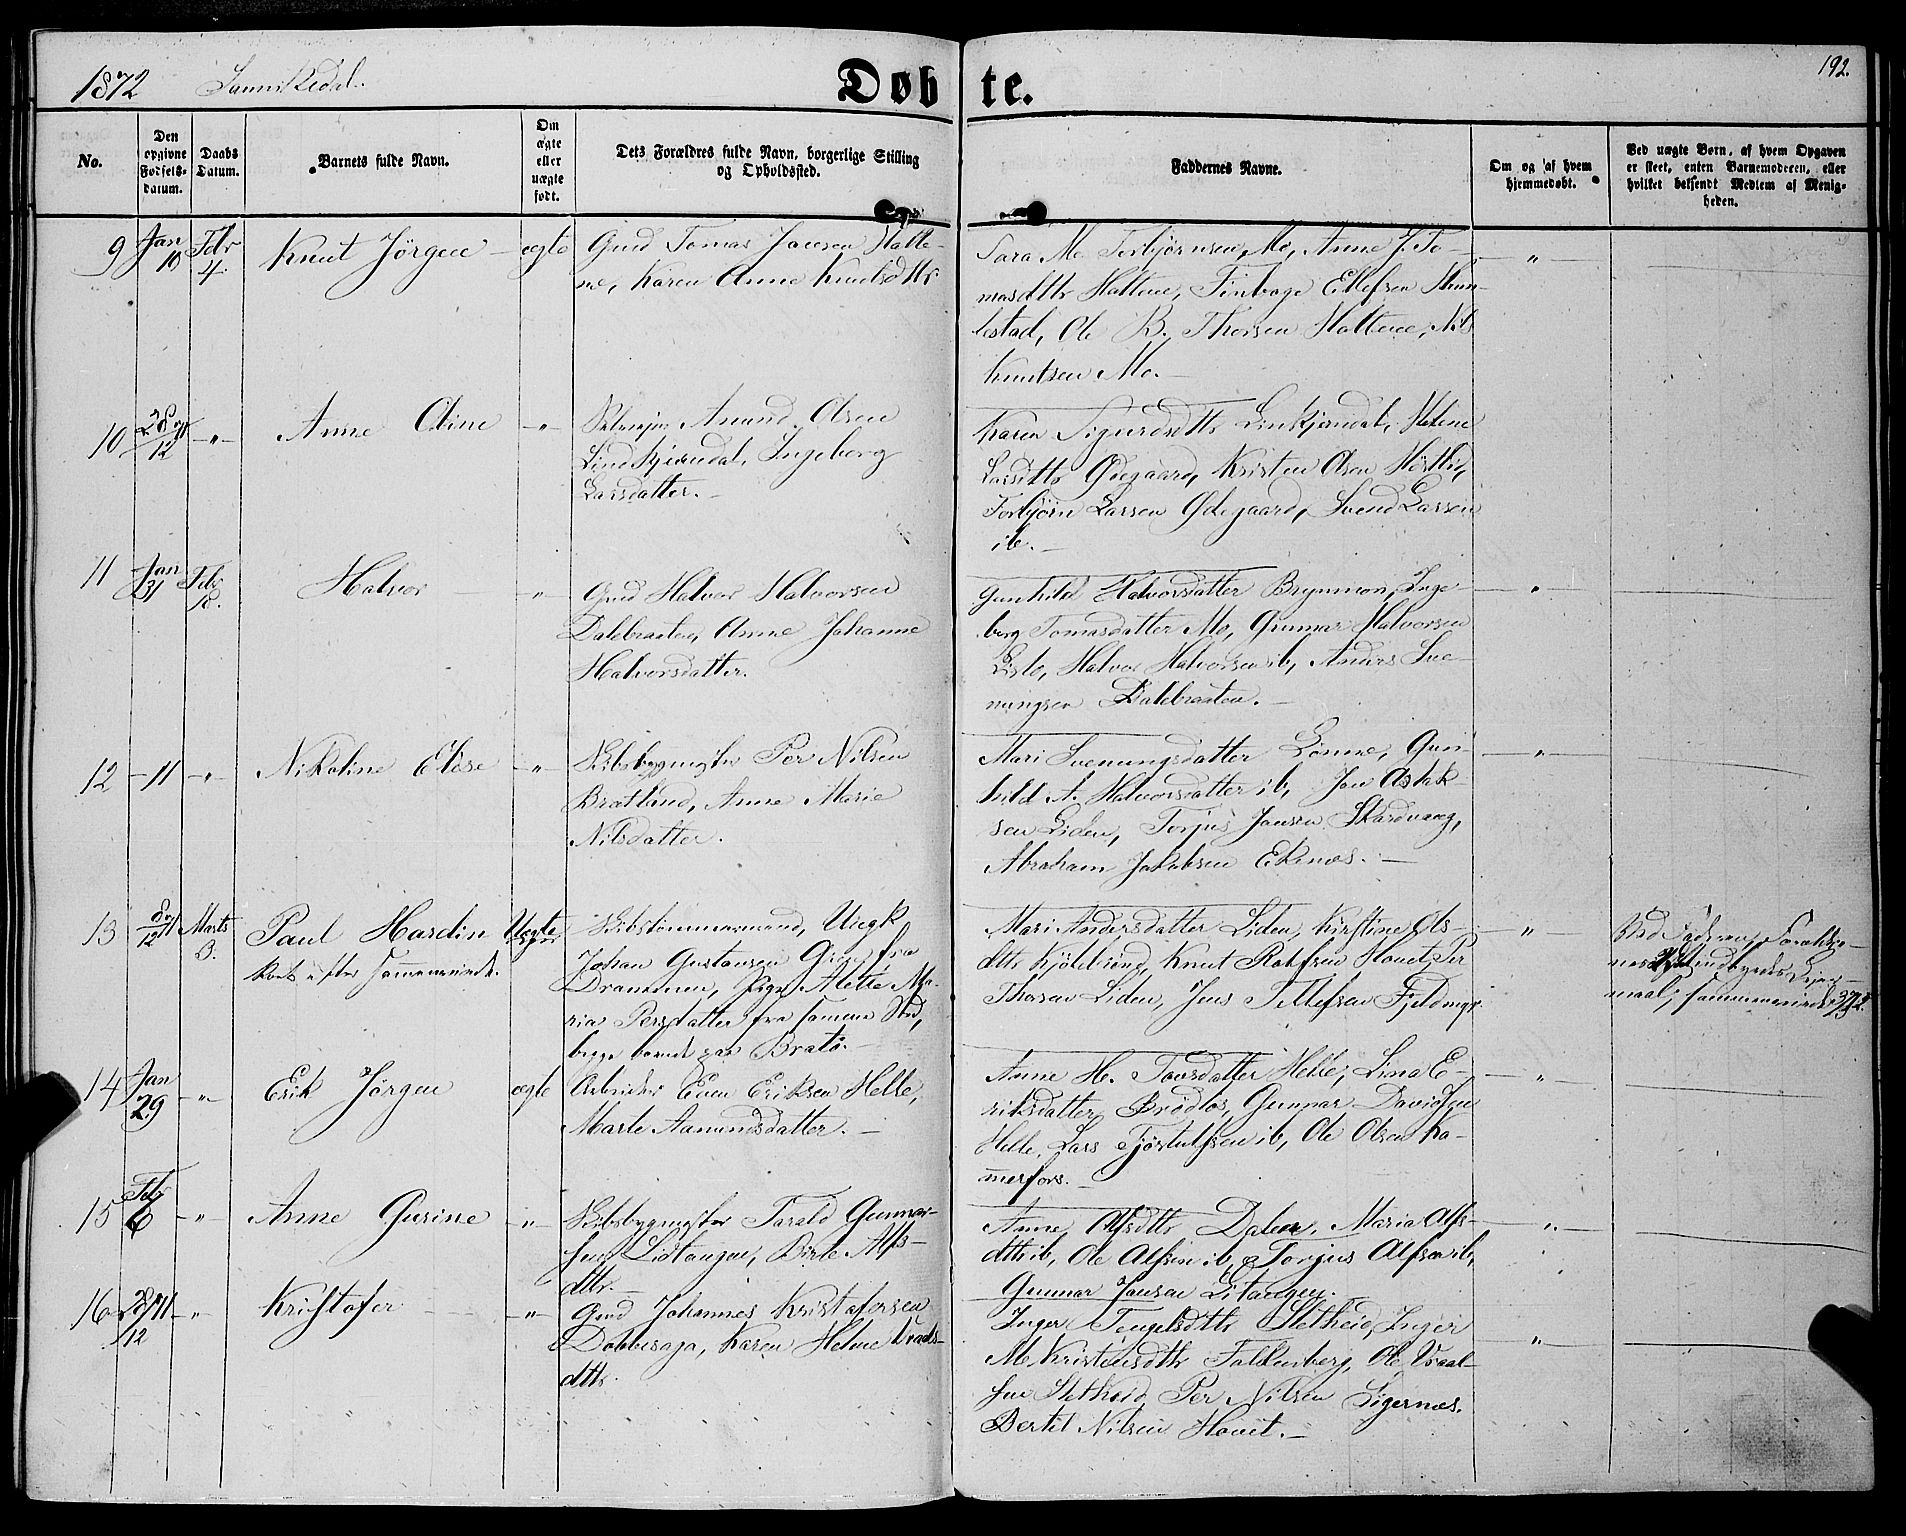 1872 Sannikedal.
Døbte.
192.
No.
Den opgivne Fødsels-datum.
Daabs Datum.
Barnets fulde Navn.
Om ægte eller uægte født.
Dets Forældres fulde Navn, borgerlige Stilling og Opholdssted.
Faddernes Navne.
Om og af hvem hjemmedøbt.
Ved uægte Børn, af hvem Opgaven er skeet, enten Barnemoderen, eller hvilket bekjendt Medlem af Menigheden.
9 Jan 10 Febr 4. Knut Jørgen – ægte
Gmd Tomas Jansen Halte-
ne, Karen Anne Knutsdttr
Sara M. Torbjørnsen, Mo, Anne J. To-
masdttr Haltene, Ellefsen
Ole B. Thorsen Haltene, Nils
Knutsen Mo. –
10 28/12 71 – " – Anne Oline – " –
Anund Olsen
Lindkjerndal, Ingeborg
Larsdatter. –
Karen Sigurdsdttr Linkjerndal, Helene
Larsdttr Ødegaard, Kristen Olsen
Torbjørn Larsen Ødegaard, Svend Larsen
ib. –
11 Jan 31 Febr 18. Halvor – " –
Gmd Halvor Halvorsen
Dalebraaten, Anne Johanne
Halvorsdatter.
Gunhild Halvorsdatter Brynmon, Inge-
borg Tomasdatter Mo, Gunnar Halvorsen
Halvor Halvorsen ib, Anders Sve-
nungsen Dalebraaten. –
12 – 11 – " – Nikoline Elise – " –
Skibsbygmester Per Nilsen
Bratland, Anne Marie
Nilsdatter.
Mari Svenungsdatter Lønne, Gun-
hild A. Halvorsdatter ib, Jon Aslak-
sen Liden, Torjus Jansen Skardvaag,
Abraham Jakobsen Ekenæs. –
13 8/12 71 Marts 3. Paul Hardin Uægte
Skibstømmermand, Ungk
Johan Gustavsen fra
Drammen, Pige Alette Ma-
ria Persdatter fra samme Sted,
begge boende paa Bratø. –
Mari Andersdatter Liden, Kirstine Ols-
dttr Kjølebrønd, Knut Rolfsen Hovet, Per
Thorsen Liden, Jens Tellefsen Fjeldmyr
14 Jan 29 – " – Erik Jørgen ægte
Arbeider Even Eriksen Helle,
Marte Aanundsdatter. –
Anne H. Torsdatter Helle, Lina E-
riksdatter Brødløs, Gunnar Davidsen
Helle, Lars Tjøstulfsen ib, Ole Olsen Ka-
merfors. –
15 Febr 6 – " – Anne Gurine – " –
Skibsbygmester Tarald Gunnar-
sen Lidtangen, Birte Alfs-
dttr. –
Anne Alfsdttr Dalen, Maria Alfs-
dttr ib, Ole Alfsen ib, Torjus Alfsen ib,
Gunnar Jansen Litangen.
16 28/12 71 – " – Kristofer – " –
Gmd Johannes Kristofersen
Dobbesaga, Karen Helene Vraals-
dttr.
Inger Tengelsdttr Stetheid, Inger
M. Kristensdttr Falkenberg, Ole Vraal-
sen Stetheid, Per Nilsen Ligernæs.
Bertil Nilsen Hovet. –